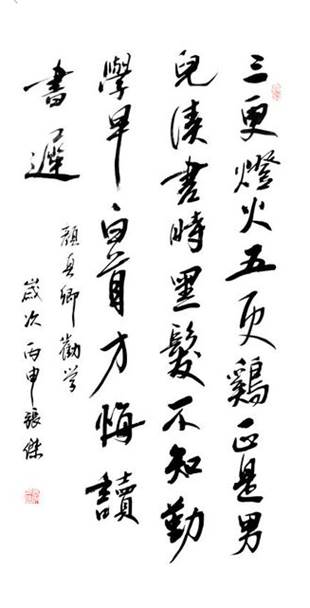 三更燈火五更鷄正是男
兒讀書時黑髮不知勤
學早白首方悔讀
書遲
顏真卿勸学
歲次丙申張傑